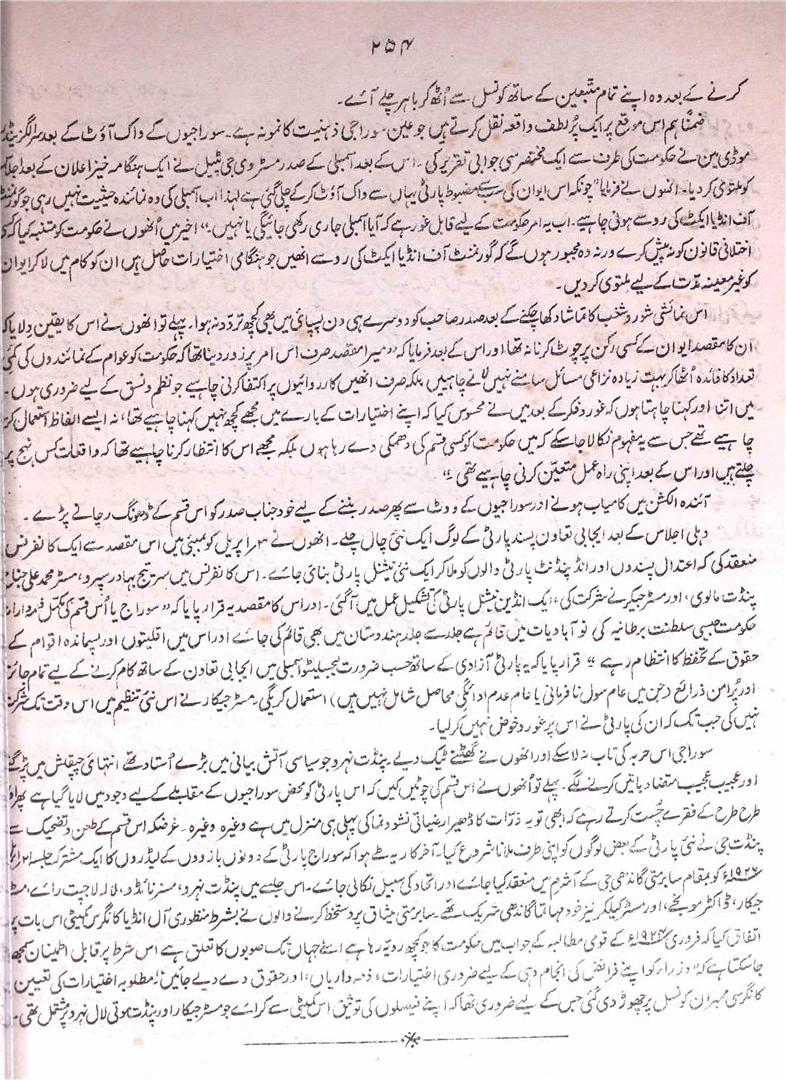 ۲۵۴
کرنے کے بعد وہ اپنے تمام متبعین کے ساتھ کونسل سے اُٹھ کر باہر چلے آئے۔
ضمناً ہم اس موقع پر ایک پُر لطف واقعہ نقل کرتے ہیں جو عین سوراجی ذہنیت کا نمونہ ہے۔ سوراجیوں کے واک آؤٹ کے بعد سر الگزینڈر
موڈی من نے حکومت کی طرف سے ایک مختصر سی جوابی تقریر کی۔ اس کے بعد اسمبلی کے صدر مسٹر وی جی پٹیل نے ایک ہنگامہ خیز اعلان کے بعد جلسہ
کو ملتوی کر دیا۔ انھوں نے فرمایا "چونکہ اس ایوان کی سب سے مضبوط پارٹی یہاں سے واک آؤٹ کر کے چلی گئی ہے لہذا اب اسمبلی کی وہ نمائندہ حیثیت نہیں رہی جو گورنمنٹ
آف انڈیا ایکٹ کی رو سے ہونی چاہیے۔ اب یہ امر حکومت کے لیے قابل غور ہے کہ آیا اسمبلی جاری رکھی جائیگی یا نہیں۔" اخیر میں اُنھوں نے حکومت کو متنبہ کیا کہ کوئی
اختلافی قانون کو نہ پیش کرے ورنہ وہ مجبور ہوں گے کہ گورنمنٹ آف انڈیا ایکٹ کی رو سے انھیں جو ہنگامی اختیارات حاصل ہیں ان کو کام میں لا کر ایوان
کو غیر معینہ مدّت کے لیے ملتوی کر دیں۔
اس نمائشی شور و شغب کا تماشا دکھا چکنے کے بعد صدر صاحب کو دوسرے ہی دن لیپاپائی میں بھی کچھ تردّد نہ ہوا۔ پہلے تو انھوں نے اس کا یقین دلایا کہ
ان کا مقصد ایوان کے کسی رکن پر چوٹ کرنا نہ تھا اور اس کے بعد فرمایا کہ "میرا مقصد صرف اس امر پر زور دینا تھا کہ حکومت کو عوام کے نمائندوں کی کمی
تعداد کا فائدہ اُٹھا کر بہت زیادہ نزاعی مسائل سامنے نہیں لانے چاہییں بلکہ صرف انھیں کارروائیوں پر اکتفا کرنی چاہیے جو نظم و نسق کے لیے ضروری ہوں۔
میں اتنا اور کہنا چاہتا ہوں کہ غور و فکر کے بعد میں نے محسوس کیا کہ اپنے اختیارات کے بارے میں مجھے کچھ نہیں کہنا چاہیے تھا، نہ ایسے الفاظ استعمال کرنے
چاہیے تھے جس سے یہ مفہوم نکالا جا سکے کہ میں حکومت کو کسی قسم کی دھمکی دے رہا ہوں بلکہ مجھے اس کا انتظار کرنا چاہیے تھا کہ واقعات کس نہج پر
چلتے ہیں اور اس کے بعد اپنی راہ عمل متعیّن کرنی چاہیے تھی۔"
آئندہ الکشن میں کامیاب ہونے اور سوراجیوں کے ووٹ سے پھر صدر بننے کے لیے خود جناب صدر کو اس قسم کے ڈھونگ رچانے پڑے۔
دہلی اجلاس کے بعد ایجابی تعاون پسند پارٹی کے لوگ ایک نئی چال چلے۔ انھوں نے ۳؍ اپریل کو بمبئی میں اس مقصد سے ایک کانفرنس
منعقد کی کہ اعتدال پسندوں اور انڈپنڈنٹ پارٹی والوں کو ملا کر ایک نئی نیشنل پارٹی بنائی جائے۔ اس کانفرنس میں سر تیج بہادر سپرو، مسٹر محمد علی جناح
پنڈت مالوی، اور مسٹر جیکر نے شرکت کی، ایک انڈین نیشنل پارٹی کی تشکیل عمل میں آگئی۔ اور اس کا مقصد یہ قرار پایا کہ "سوراج یا اُس قسم کی مکمل ذمہ دارانہ
حکومت جیسی سلطنت برطانیہ کی نو آبادیات میں قائم ہے جلد سے جلد ہندوستان میں بھی قائم کی جائے اور اس میں اقلیتوں اور پسماندہ اقوام کے
حقوق کے تحفظ کا انتظام رہے۔" قرار پایا کہ یہ پارٹی آزادی کے ساتھ حسب ضرورت لیجسلیٹو اسمبلی میں ایجابی تعاون کے ساتھ کام کرنے کے لیے تمام جائز
اور پُر امن ذرائع (جن میں عام سول نافرمانی یا عام عدم ادائگی محاصل شامل نہیں ہیں) استعمال کریگی۔ مسٹر جیکار نے اس نئی تنظیم میں اس وقت تک شرکت
نہیں کی جب تک کہ ان کی پارٹی نے اس پر غور و خوض نہیں کر لیا۔
سوراجی اس حربہ کی تاب نہ لا سکے اور انھوں نے گھٹنے ٹیک دیے۔ پنڈت نہرو جو سیاسی آتش بیانی میں بڑے اُستاد تھے انتہائی چپقلش میں پڑ گئے
اور عجیب عجیب متضاد باتیں کرنے لگے۔ پہلے تو اُنھوں نے اس قسم کی چوٹیں کیں کہ اس پارٹی کو محض سوراجیوں کے مقابلے کے لیے وجود میں لایا گیا ہے پھر وہ
طرح طرح کے فقرے چُست کرتے رہے کہ ابھی تو یہ ذرّات کا ڈھیر ارضیاتی نشو و نما کی پہلی ہی منزل میں ہے وغیرہ وغیرہ۔ غرضکہ اس قسم کے طعن و تضحیک سے
پنڈت جی نے نئی پارٹی کے بعض لوگوں کو اپنی طرف ملانا شروع کیا۔ آخر کار یہ طے ہوا کہ سوراج پارٹی کے دونوں بازوؤں کے لیڈروں کا ایک مشترکہ جلسہ ۲۱؍ اپریل
۱۹۲۶ء کو بمقام سابرمتی گاندھی جی کے آشرم میں منعقد کیا جائے اور اتحاد کی سبیل نکالی جائے۔ اس جلسے میں پنڈت نہرو، مسز نائڈو، لالہ لاجپت رائے، مسٹر
جیکار، ڈاکٹر مونجے، اور مسٹر کیلکر نیز خود مہاتما گاندھی شریک تھے۔ سابرمتی میثاق پر دستخط کرنے والوں نے بشرط منظوری آل انڈیا کانگرس کمیٹی اس بات پر
اتفاق کیا کہ فروری ۱۹۲۴ء کے قومی مطالبہ کے جواب میں حکومت کا جو کچھ رویّہ رہا ہے اسے جہاں تک صوبوں کا تعلق ہے اس شرط پر قابل اطمینان سمجھا
جا سکتا ہے کہ "وزراء کو اپنے فرائض کی انجام دہی کے لیے ضروری اختیارات، ذمہ داریاں، اور حقوق دے دیے جائیں" مطلوبہ اختیارات کی تعیین پر
کانگرسی ممبران کونسل پر چھوڑ دی گئی جس کے لیے ضروری تھا کہ اپنے فیصلوں کی توثیق اس کمیٹی سے کرائے جو مسٹر جیکار اور پنڈت موتی لال نہرو پر مشتمل تھی۔